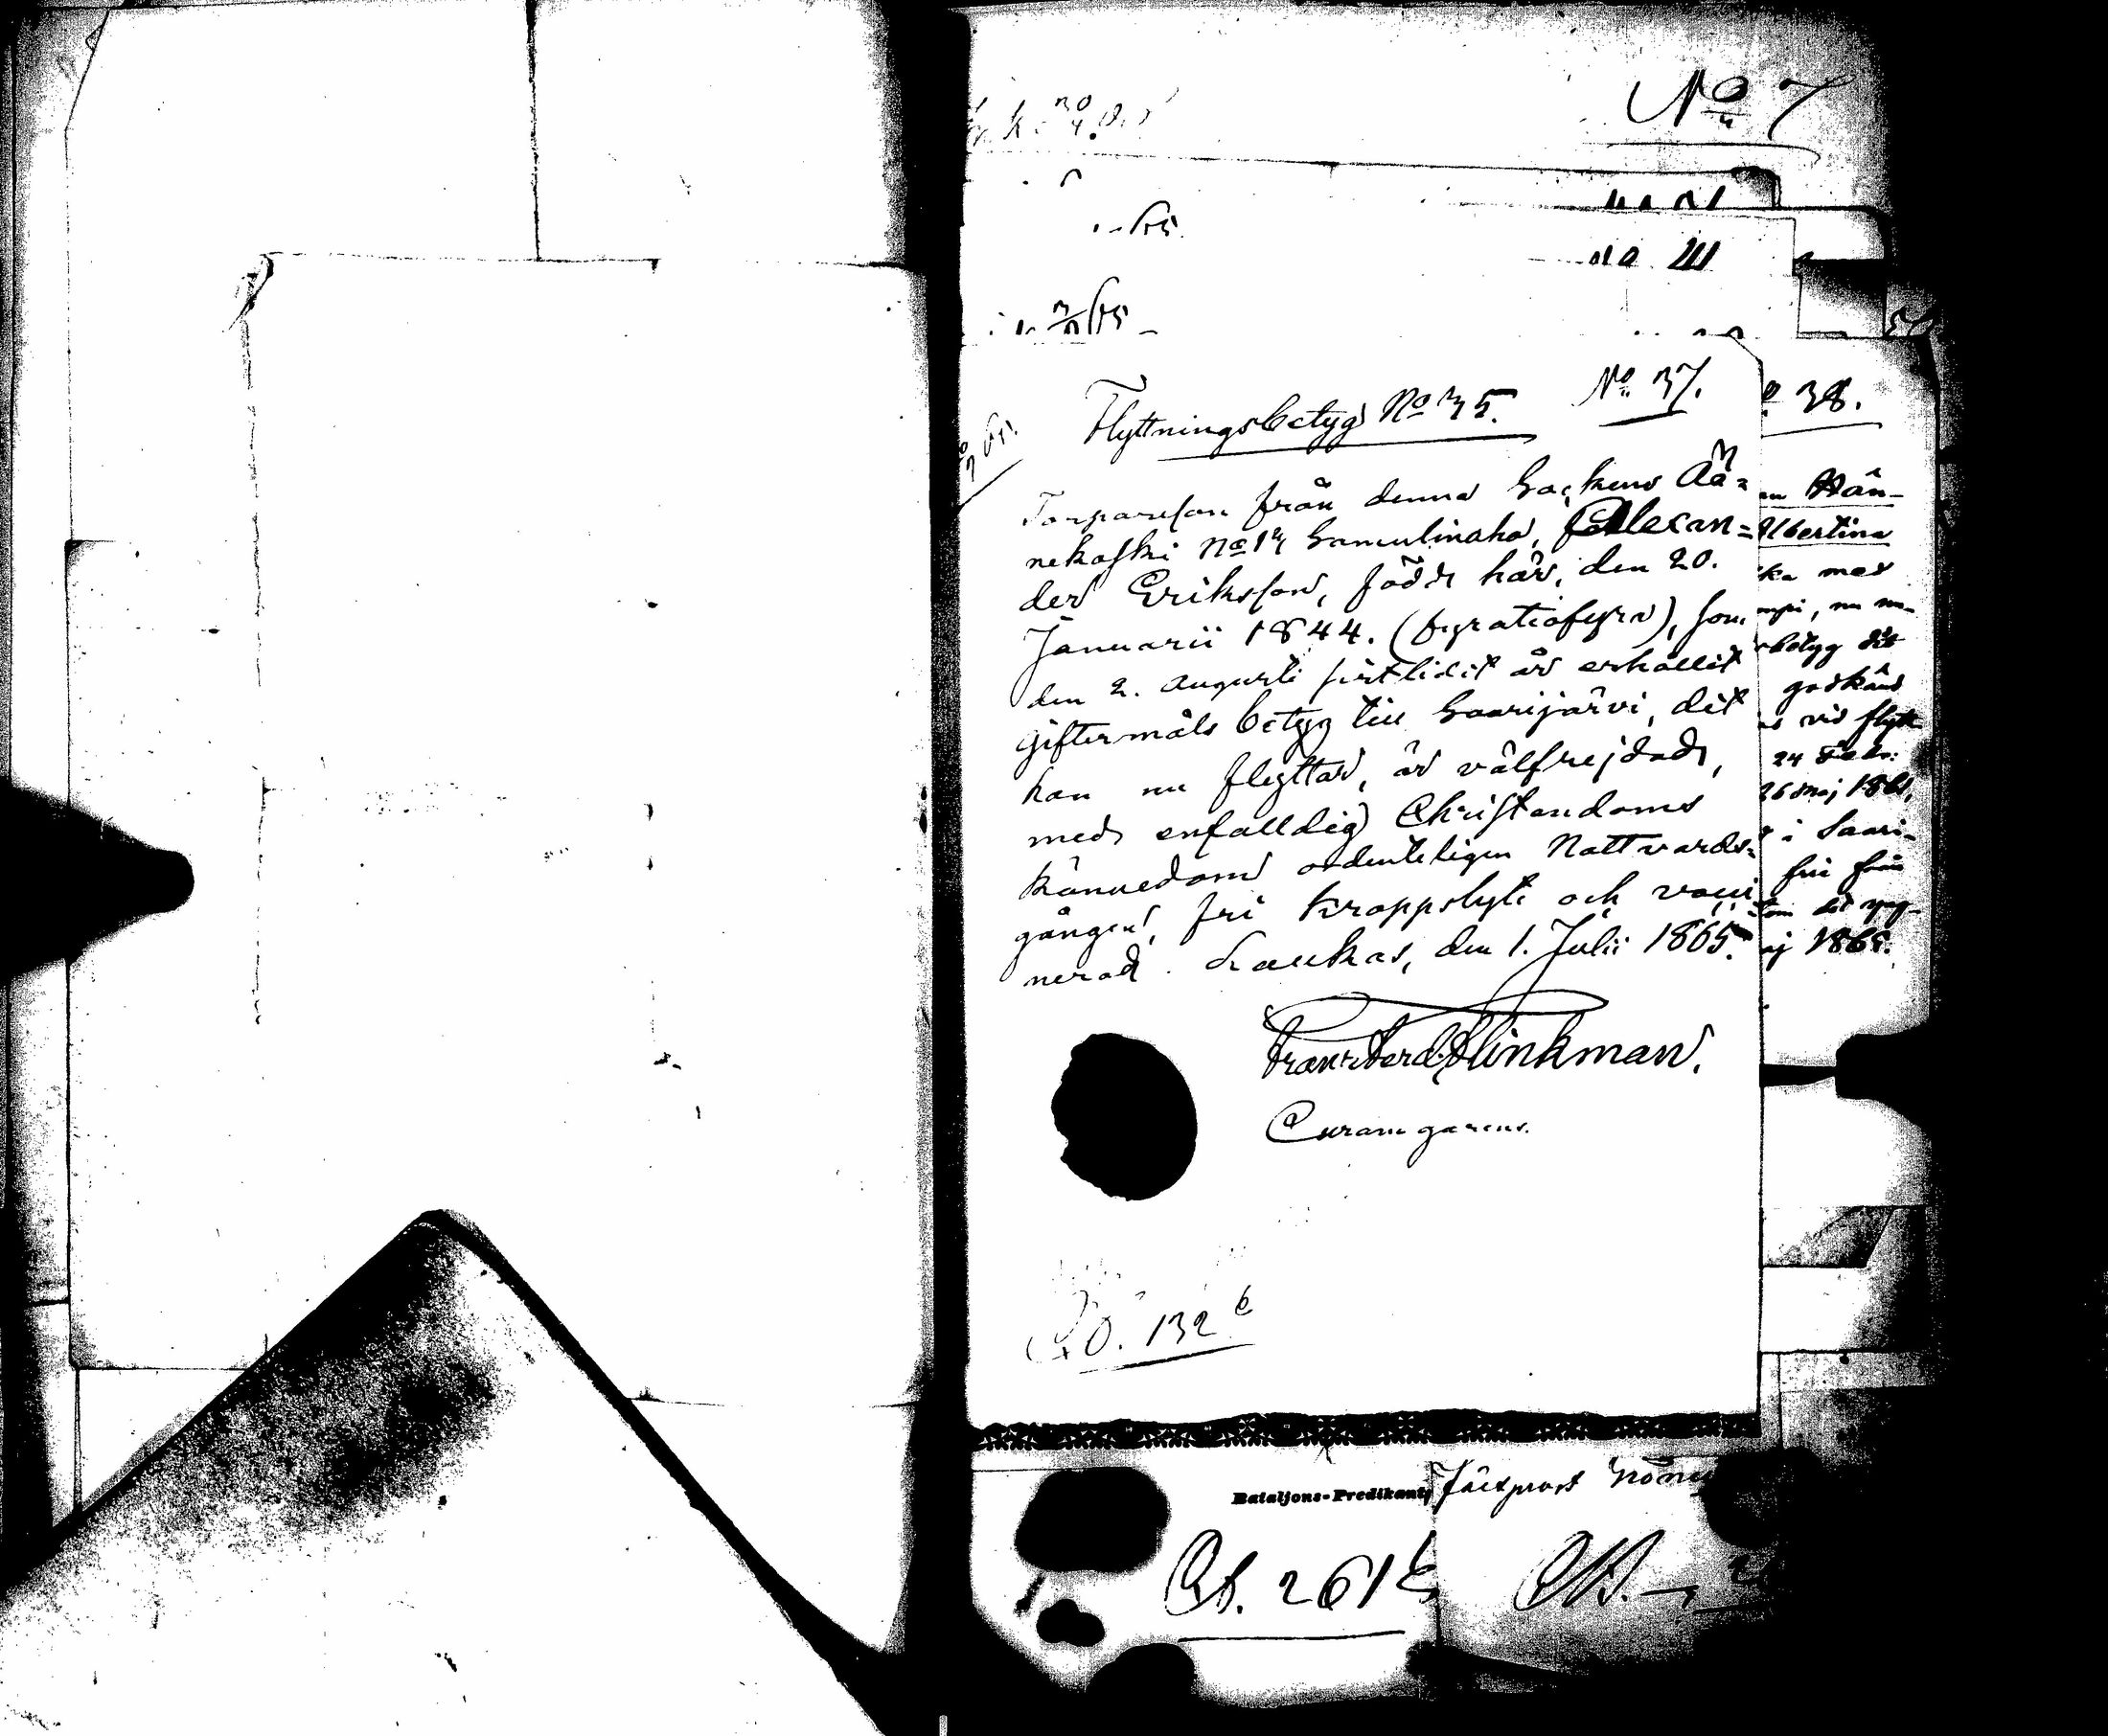 No 7
No 37.
Flyttningsbetyg No 35.
Torpareson från denna Sockens Ää=
nekoski No 13 Samulinaho, Alexan=
der Eriksson, född här, den 20.
Januarii 1844. (fyratiofyra), som
den 2. Augusti sistlidit år erhållit
giftermåls betyg till Saarijärvi, dit
han nu flyttar, är välfrejdad,
med enfalldig Christendoms
kännedom ordenteligen Nattvards-
gången, fri kroppslyte och vacci
nerad. Laukas, den 1. Julii 1865.
Frans Ferd. Flinkman.
Curam gerens.
132 b
38.
Hän-
Albertina
med
betyg dit
godkänd
vid flytt
24
26 maj 1861,
i Saari-
fri från
1865.
Bataljons-Predikant
261